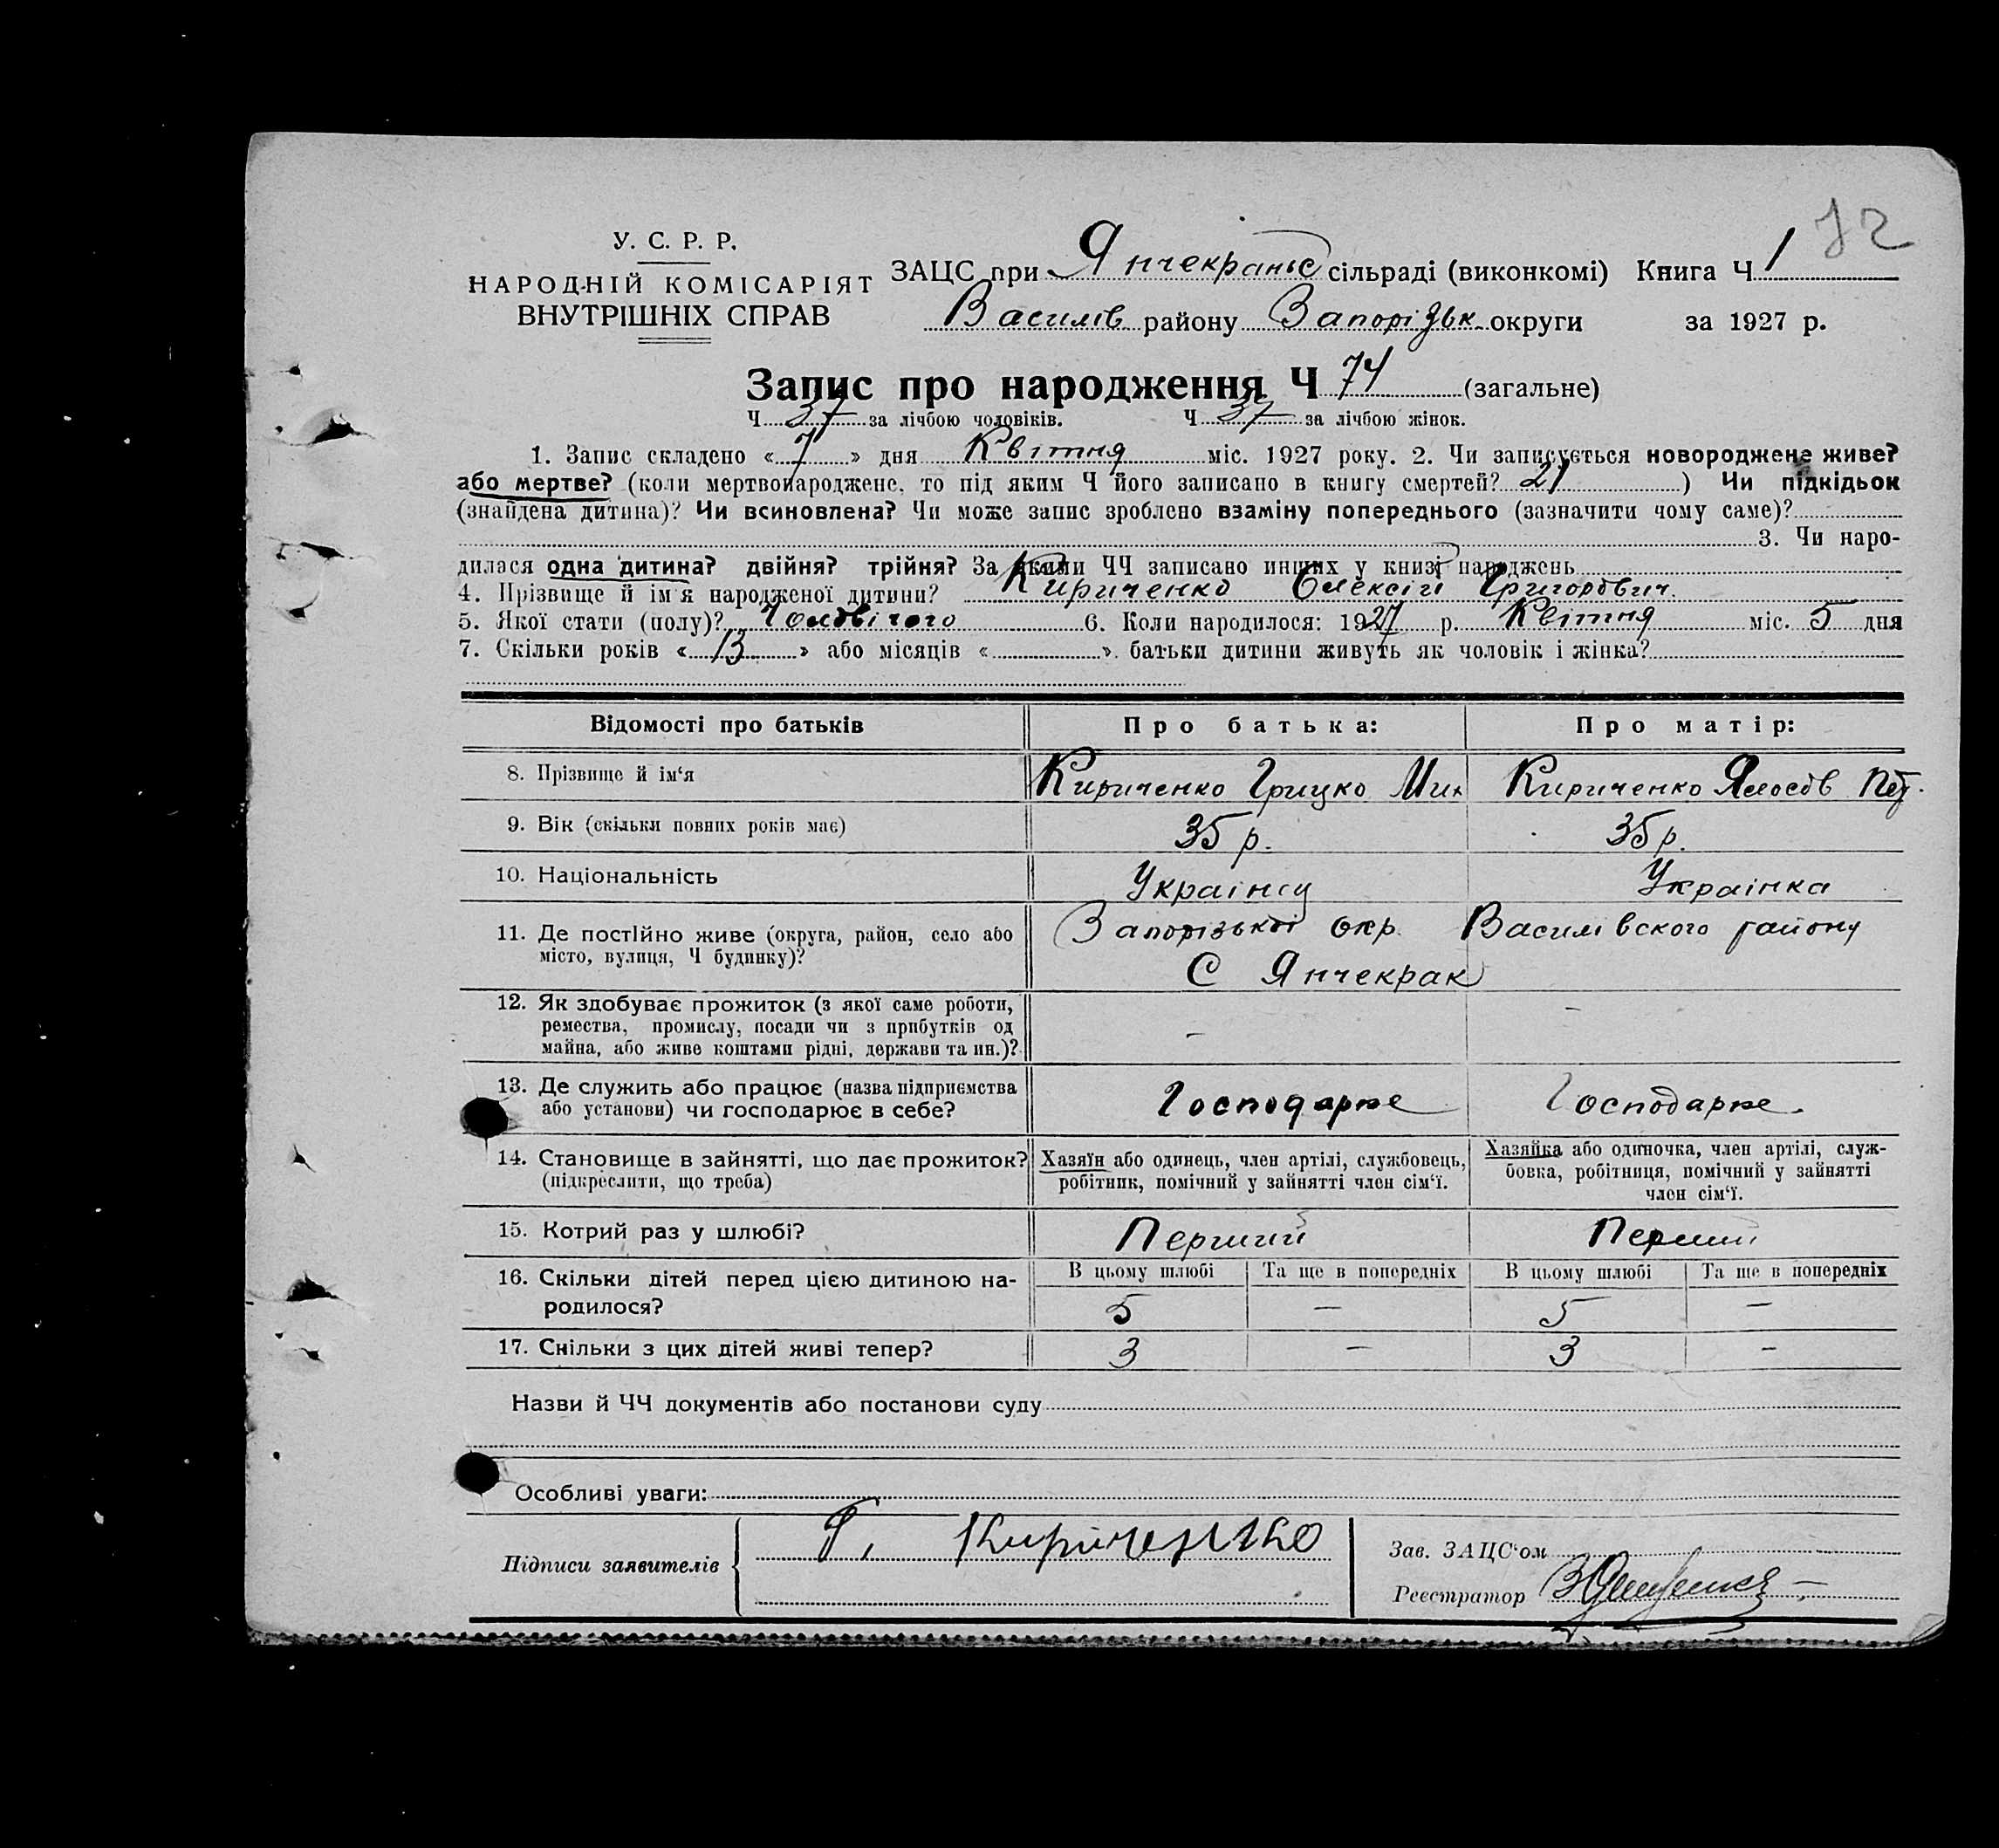 72
У. С. Р. Р.
НАРОДНІЙ КОМІСАРІЯТ
ВНУТРІШНІХ СПРАВ
ЗАЦС при Янчекраньс сільраді (виконкомі) Книга Ч 1
Василів району Запорізьк. округи за 1927 р.
Запис про народження Ч 74 (загальне)
Ч 37 за лічбою чоловіків. Ч 37 за лічбою жінок.
1. Запис складено « 7 » дня Квітня міс. 1927 року. 2. Чи записується новороджене живе?
або мертве? (коли мертвонароджене, то під яким Ч його записано в книгу смертей? 21 ) Чи підкідьок
(знайдена дитина)? Чи всиновлена? Чи може запис зроблено взаміну попереднього (зазначити чому саме)?
3. Чи наро-
дилася одна дитина? двійня? трійня? За якими ЧЧ записано инших у книзі народжень
4. Прізвище й ім'я народженої дитини? Кириченко Олексій Григорович.
5. Якої стати (полу)? Чоловічого 6. Коли народилося: 1927 р. Квітня міс. 5 дня
7. Скільки років « 13 » або місяців « » батьки дитини живуть як чоловік і жінка?
Відомості про батьків Про батька: Про матір:
8. Прізвище й ім'я Кириченко Грицко Мих Кириченко Пет.
9. Вік (скільки повних років має) 35 р. 35 р.
10. Національність Українец Українка
11. Де постійно живе (округа, район, село або Запорізької окр. Василівского району
місто, вулиця, Ч будинку)? С Янчекрак
12. Як здобуває прожиток (з якої саме роботи,
ремества, промислу, посади чи з прибутків од
майна, або живе коштами рідні, держави та ин.)? - -
13. Де служить або працює (назва підприємства
або установи) чи господарює в себе? Господарює Господарює.
14. Становище в зайнятті, що дає прожиток?
(підкреслити, що треба)
Хазяїн або одинець, член артілі, службовець,
робітник, помічний у зайнятті член сім'ї.
Хазяйка або одиночка, член артілі, служ-
бовка, робітниця, помічний у зайнятті
член сім'ї.
15. Котрий раз у шлюбі? Перший Перший
16. Скільки дітей перед цією дитиною на-
родилося?
В цьому шлюбі Та ще в попередніх В цьому шлюбі Та ще в попередніх
5 — 5 —
17. Скільки з цих дітей живі тепер? 3 — 3 —
Назви й ЧЧ документів або постанови суду
Особливі уваги:
Підписи заявителів Г. Кириченко
Зав. ЗАЦС'ом
Реєстратор